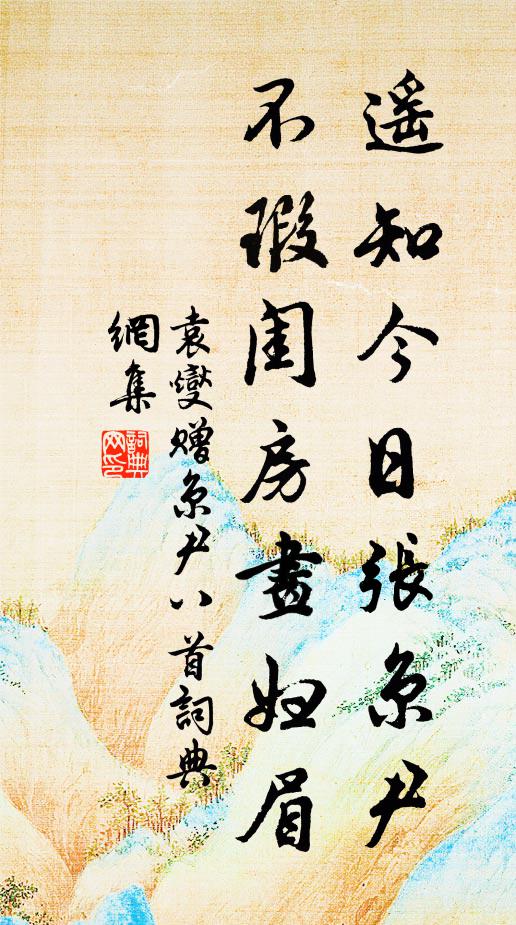 遥知今日張京尹
不瑕閨房畫妇眉
袁燮赠京尹八首詞典
網集
詞典
网印